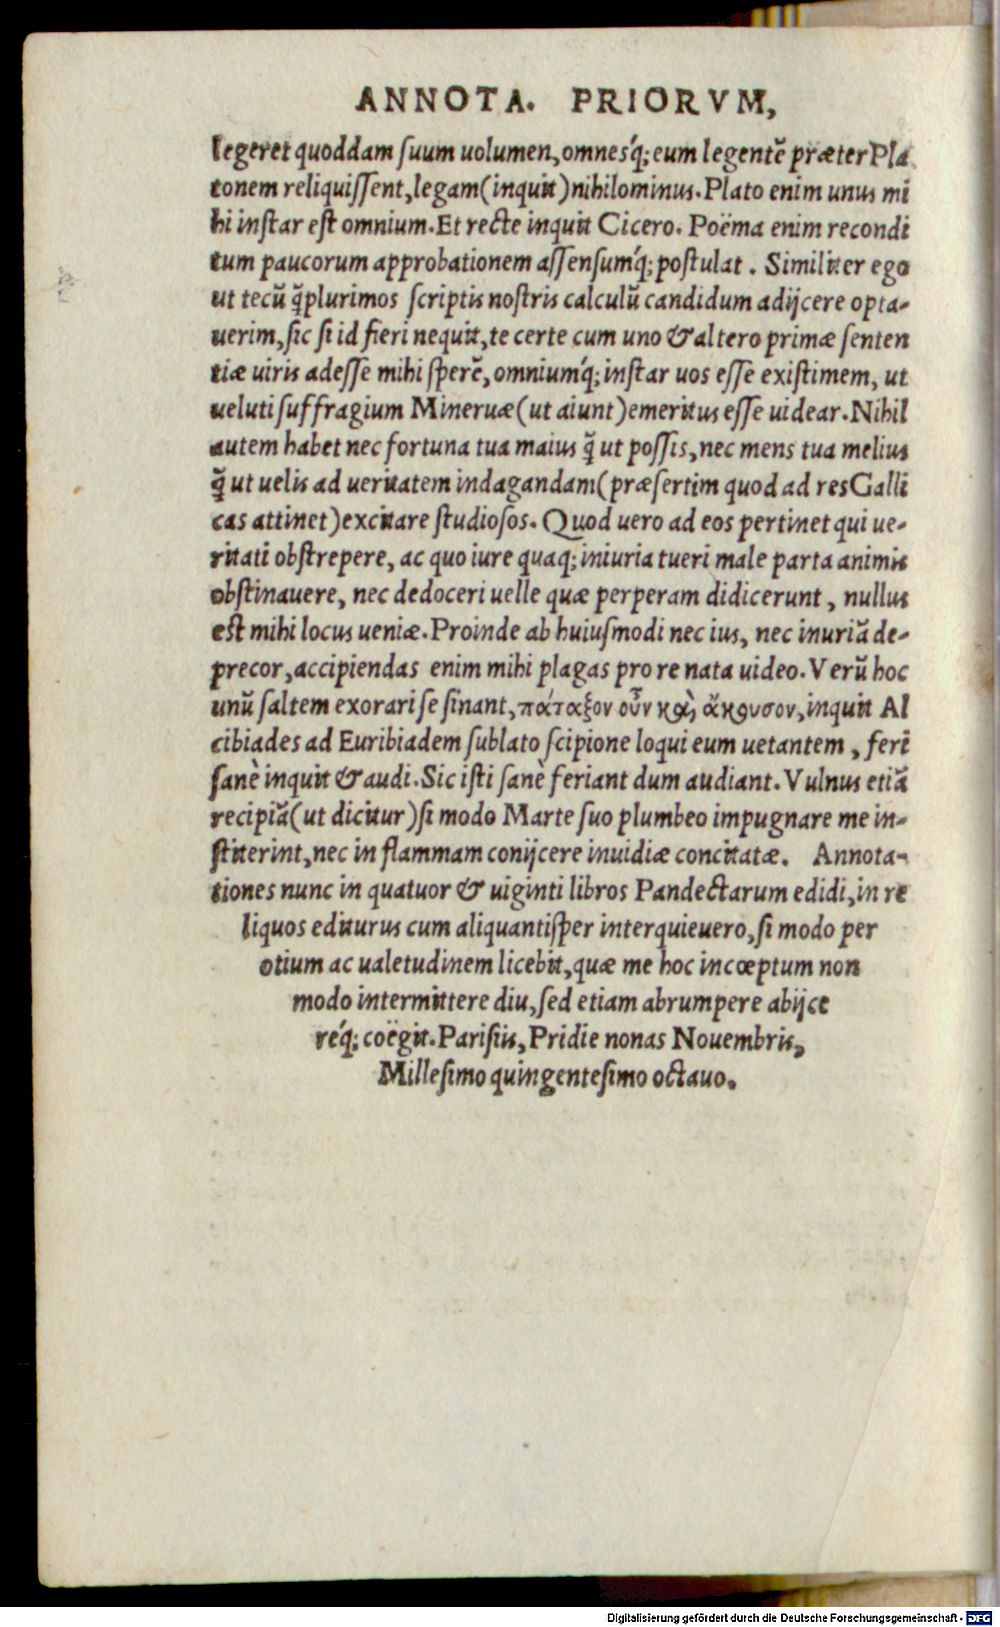 ANNOTA. PRIORVM,
legeret quoddam ſuum uolumen, omneſq́; eum legentẽ præter Pla
tonem reliquiſſent, legam (inquit) nihilominus. Plato enim unus mi
hi inſtar eſt omnium. Et recte inquit Cicero. Poëma enim recondi
tum paucorum approbationem aſſenſumq́; poſtulat. Similiter ego
ut tecũ q̃plurimos ſcriptis noſtris calculũ candidum adijcere opta-
uerim, ſic ſi id fieri nequit, te certe cum uno & altero primæ ſenten
tiæ uiris adeſſe mihi ſperẽ, omniumq́; inſtar uos eſſe exiſtimem, ut
ueluti ſuffragium Mineruæ (ut aiunt) emeritus eſſe uidear. Nihil
autem habet nec fortuna tua maius q̃ ut poſſis, nec mens tua melius
q̃ ut uelis ad ueritatem indagandam (præſertim quod ad res Galli
cas attinet) excitare ſtudioſos. Quod uero ad eos pertinet qui ue-
ritati obſtrepere, ac quo iure quaq; iniuria tueri male parta animis
obſtinauere, nec dedoceri uelle quæ perperam didicerunt, nullus
est mihi locus ueniæ. Proinde ab huiuſmodi nec ius, nec inuriã de-
precor, accipiendas enim mihi plagas pro re nata uideo. Verũ hoc
unũ ſaltem exorari ſe ſinant, πάταξον οὖν καὶ ἄκουσον, inquit Al
cibiades ad Euribiadem ſublato ſcipione loqui eum uetantem, feri
ſanè inquit & audi. Sic iſti ſanè feriant dum audiant. Vulnus etiã
recipiã (ut dicitur) ſi modo Marte ſuo plumbeo impugnare me in-
ſtiterint, nec in flammam conijcere inuidiæ concitatæ. Annota-
tiones nunc in quatuor & uiginti libros Pandectarum edidi, in re
liquos editurus cum aliquantiſper interquieuero, ſi modo per
otium ac ualetudinem licebit, quæ me hoc incœptum non
modo intermittere diu, ſed etiam abrumpere abijce
req́; coëgit. Pariſiis, Pridie nonas Nouembris,
Milleſimo quingenteſimo octauo.
Digitalisierung gefördert durch die Deutsche Forschungsgemeinschaft - DFG